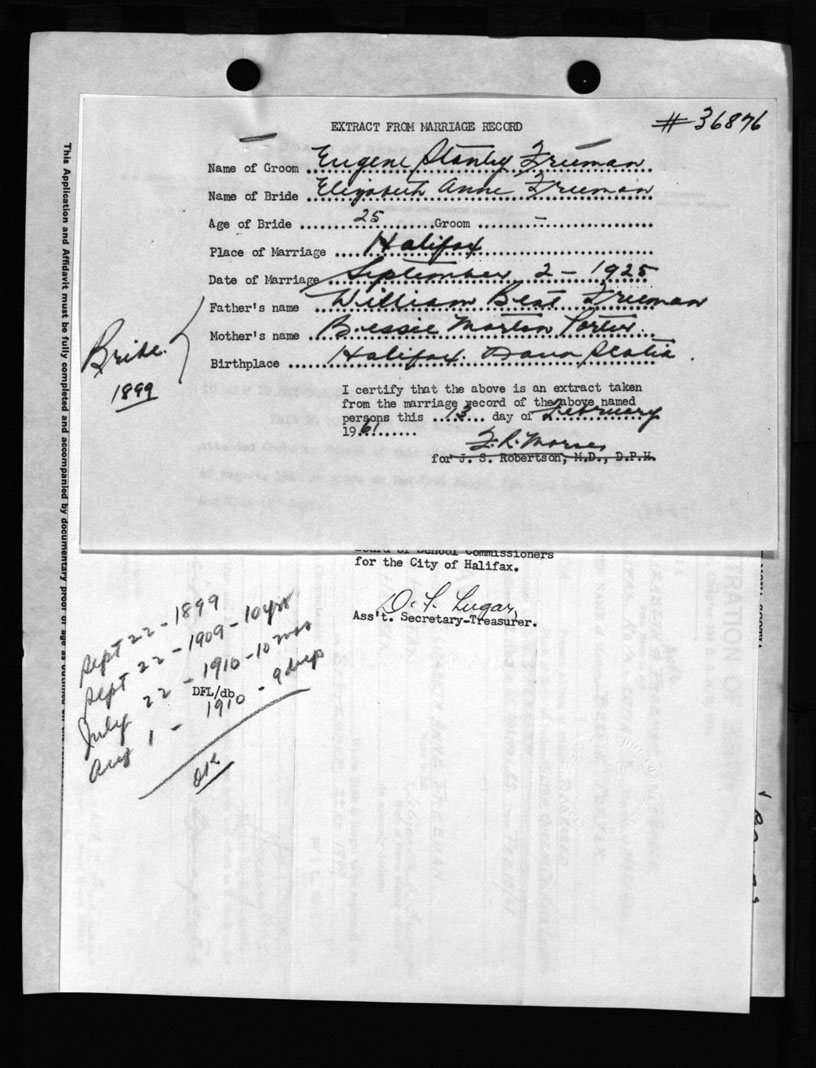 EXTRACT FROM MARRIAGE RECORD
# 36876
Name of Groom Eugene Stanley Freeman
Name of Bride Elizabeth Anne Freeman
Age of Bride 25 Groom –
Place of Marriage Halifax
Date of Marriage September 2 – 1925
Father's name William Bent Freeman
Mother's name Bessie Morton Porter
Birthplace Halifax. Nova Scotia.
Bride.
1899
I certify that the above is an extract taken
from the marriage record of the above named
persons this 13 day of February
1961
F. R. Morse
for J. S. Robertson, M.D., D.P.H.
This Application and Affidavit must be fully completed and accompanied by documentary proof of age as outlined
Board of School Commissioners
for the City of Halifax.
D. F. Lugar,
Ass't. Secretary-Treasurer.
DFL/db
Sept 22 - 1899
Sept 22 - 1909 - 10 yrs
July 22 - 1910 - 10 mos
Aug 1 - 1910 - 9 days
OK